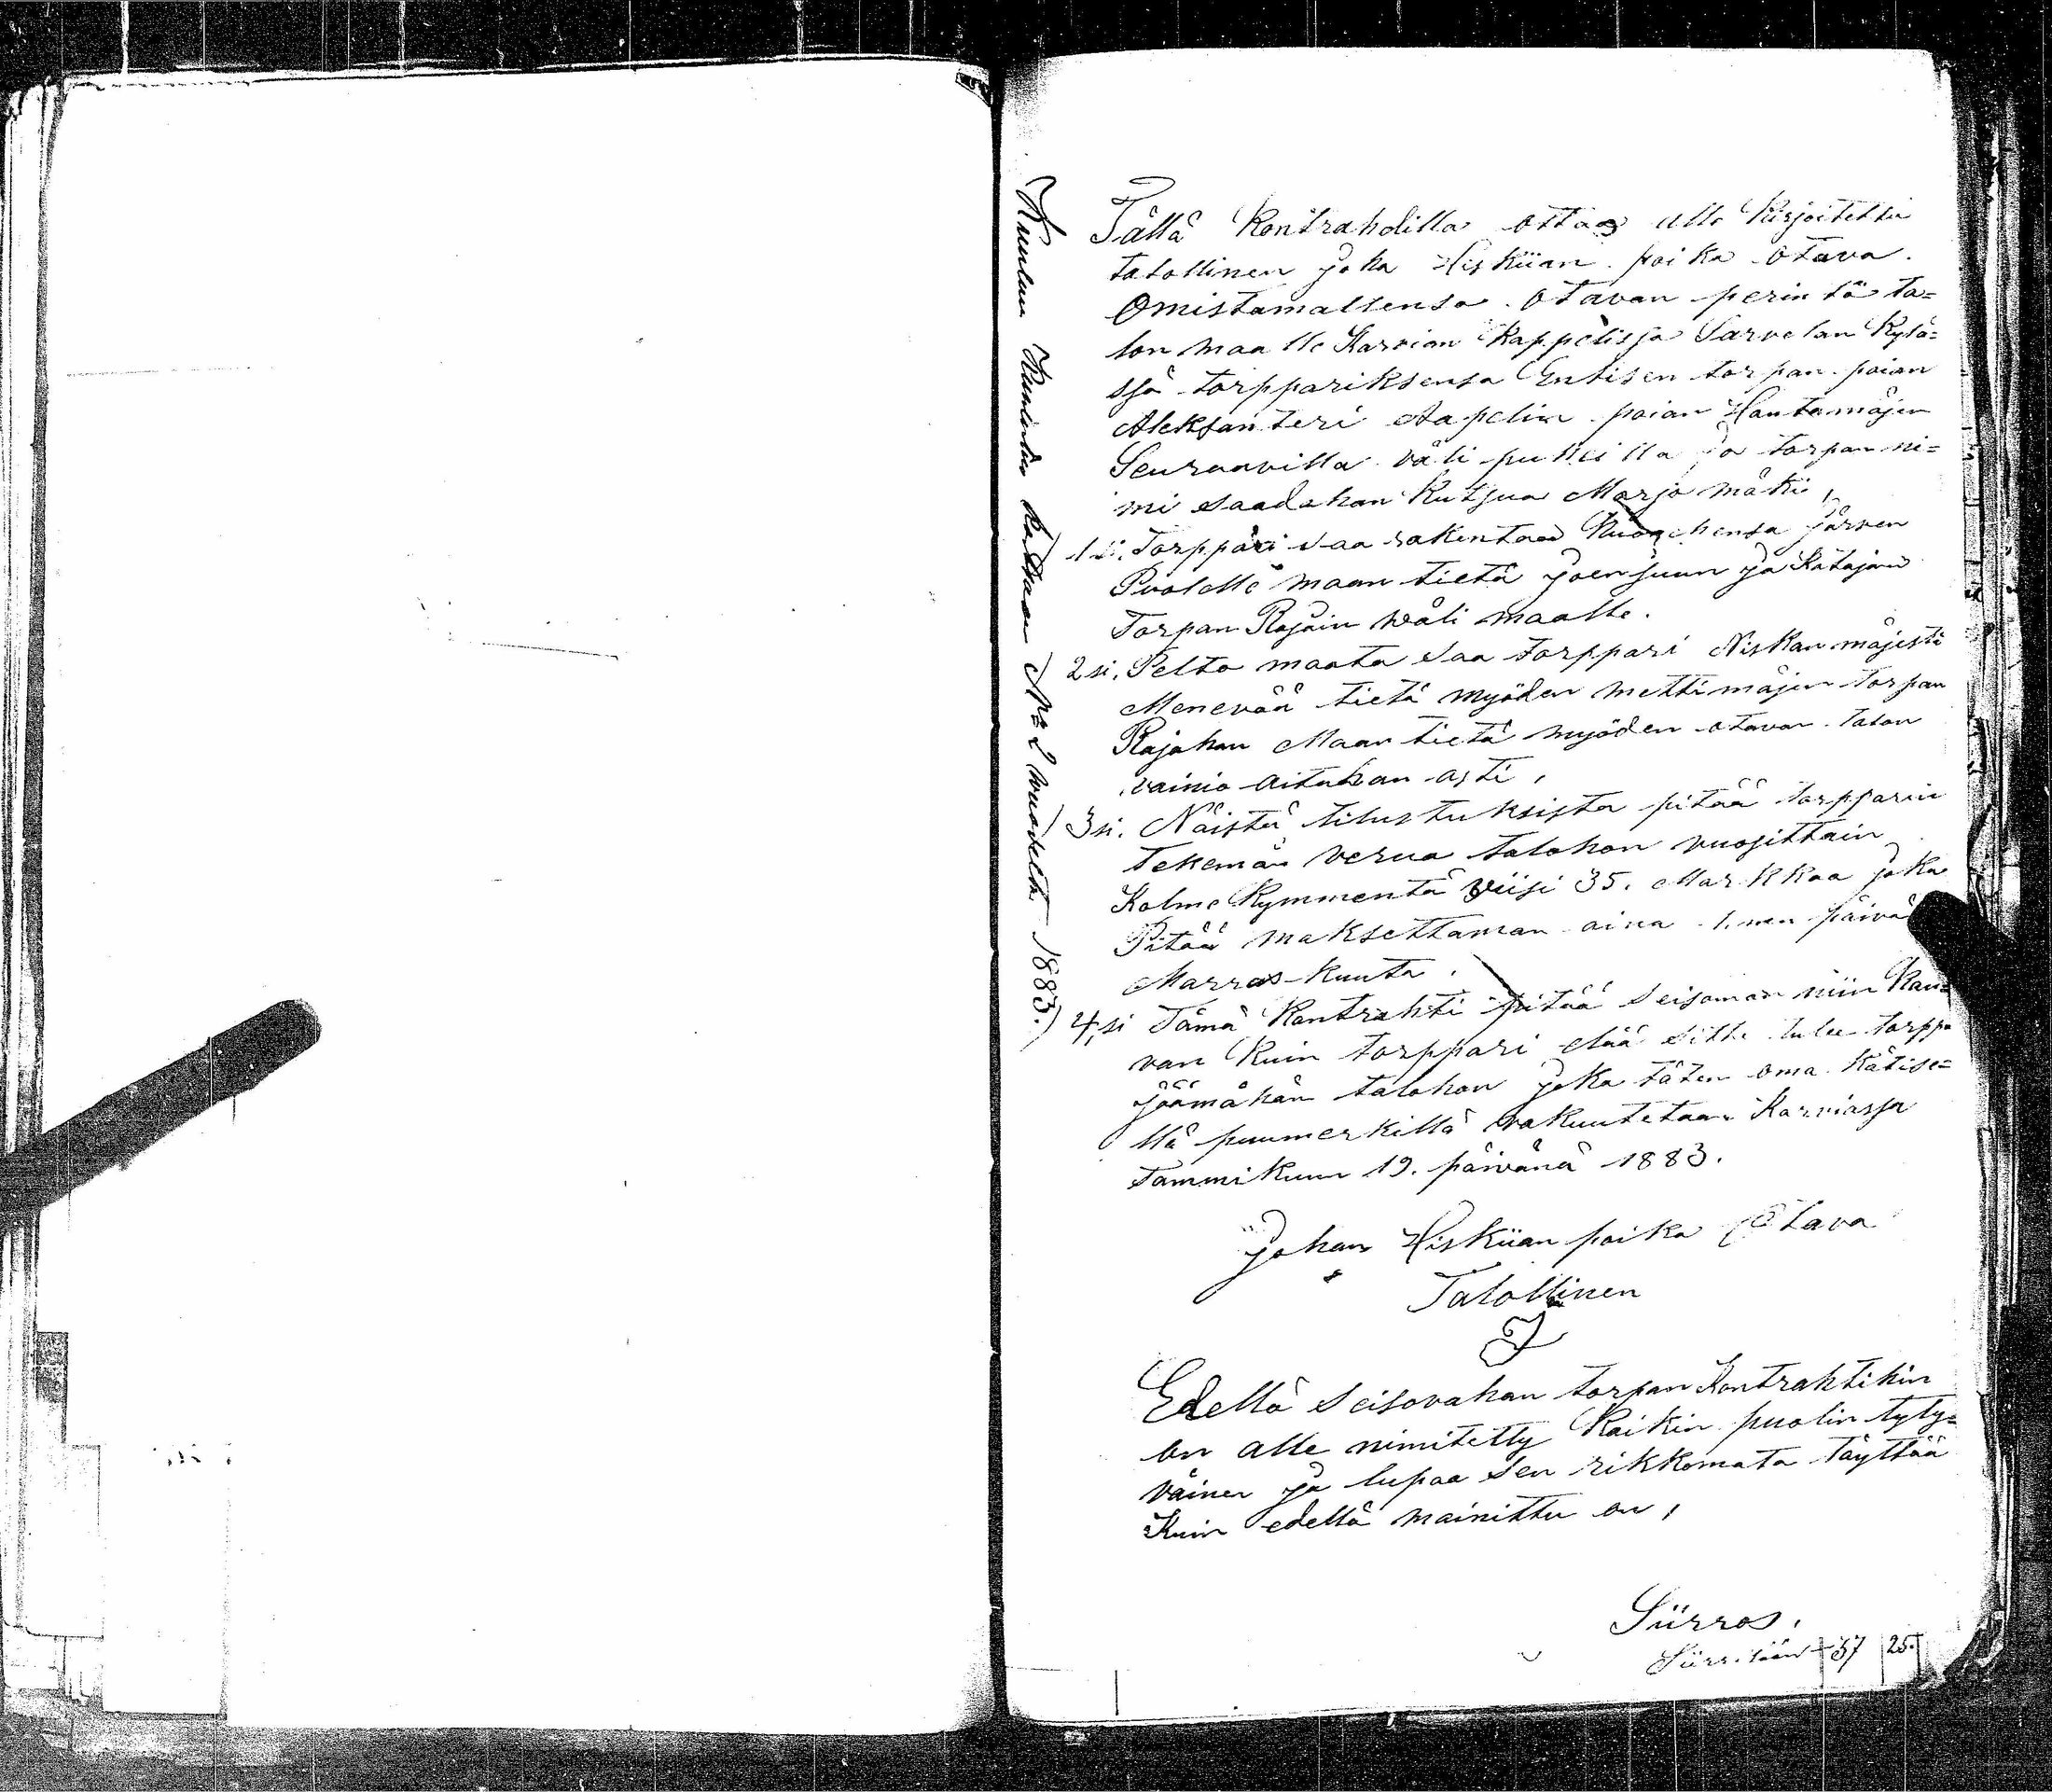 Tällä Kontrahdilla ottaa alle kirjoitettu
talollinen Joha Hiskiian poika Otava.
Omistamallensa Otavan perintö ta=
lon maalle Karvian Kappelissa Sarvelan Kylä=
ssä torppariksensa Entisen torpan poian
Aleksanteri Aapelin poian Hautamäjen
Seuraavilla väli puheilla ja torpan ni=
mi saadahan Kutsua Marjamäki,
1 si, Torppari saa rakentaa järven
Puolelle maan tietä Joensuun ja Katajan
Torpan Rajain wäli maalle.
2 si, Pelto maata saa torppari Niskanmäjestä
Menevää tietä myöden mettimäjen torpan
Rajahan Maan tietä myöden otavan talon
vainio aitahan asti,
3 si. Näistä tilustuksista pitää torpparin
tekemän veroa talohon vuosittain
Kolme Kymmentä viisi 35. Markkaa joka
Pitää maksettaman aina 1. nen päivä
Marras-Kuuta.
4, si Tämä Kontrahti pitää seisoman niin Kau=
van Kuin torppari elää sitte tulee torppa
jäämähän talohon joka täten oma Kätise=
llä puumerkillä vakuutetaan Karviassa
Tammikuun 19. päivänä 1883.
Johan Hiskiian poika Otava
Talollinen
Edellä seisovahan torpan Kontrahtihin
on alle nimitetty Kaikin puolin tyty=
väinen ja lupaa sen rikkomata täyttää
Kuin edellä mainittu on,
Siirros,
37 25.
Kuuluu Kuulutus Kartaan No 2 vuodelta 1883.